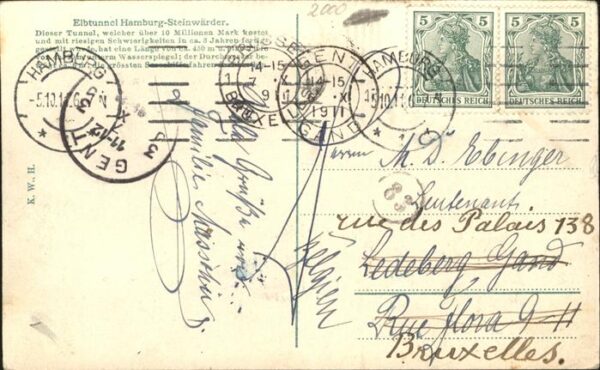 Elbtunnel Hamburg-Steinwärder.
Dieser Tunnel, welcher über 10 Millionen Mark kostet
und mit riesigen Schwierigkeiten in ca. 3 Jahren
hat eine Länge von ca. 450 m
Wasserspiegel; der
grössten
2000
HAMBURG
5.10.11.6
N
GENT
11-12
K.W.H.
14-15
7
X
BRUXELLES
GENT
14-15
XI
1911
GAND
HAMBURG
5.10.11.6
5
5
DEUTSCHES REICH
DEUTSCHES REICH
Viele Grüße
Familie
Belgien
Herrn M. D. Ebinger
Leutenant
83
rue des Palais 138
Ledeberg Gand
Rue flora 9-11
Bruxelles.